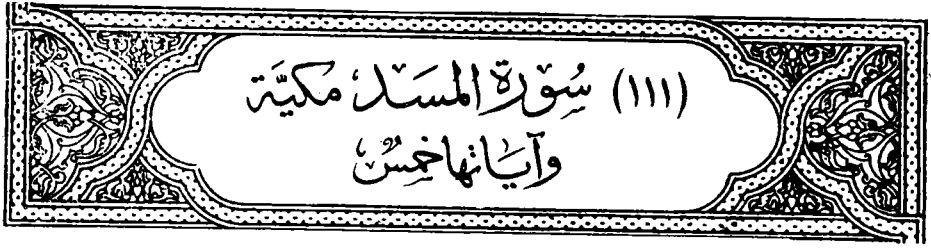 (١١١) سُورَة المسَد مَكيَّة
وآيَاتها خمسٌ